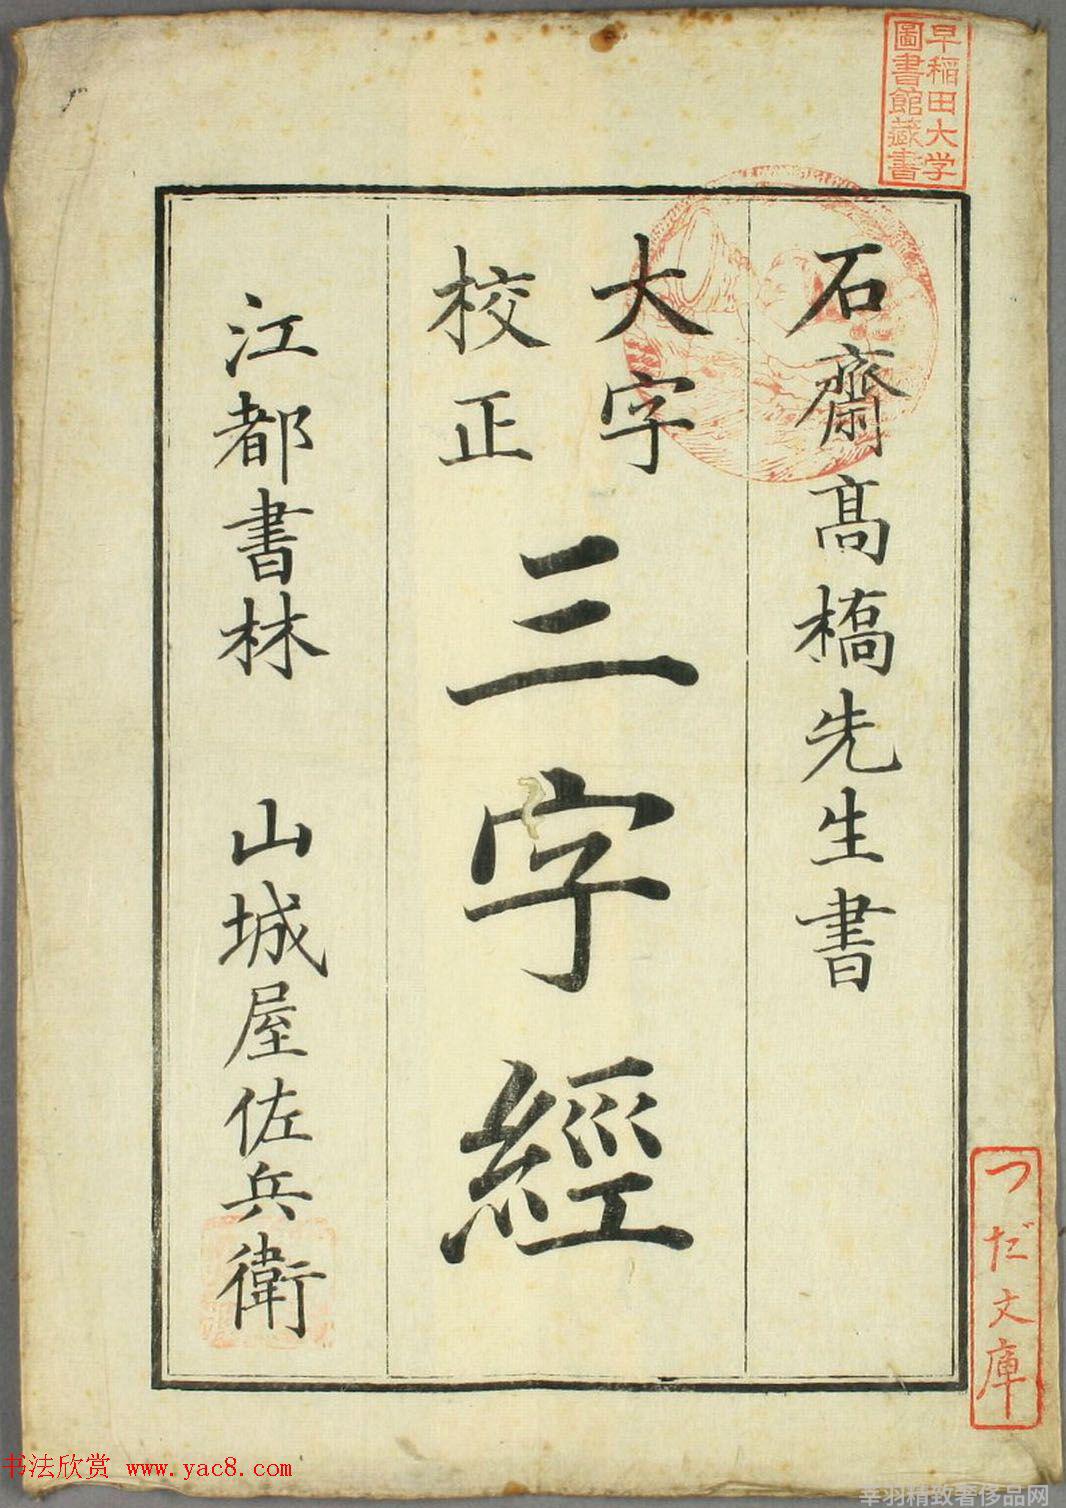 早稲田大学
圖書館藏書
石齋髙橋先生書
大字
校正
三字經
江都書林 山城屋佐兵衛
つだ文庫
书法欣赏 www.yac8.com
幸羽精致奢侈品网